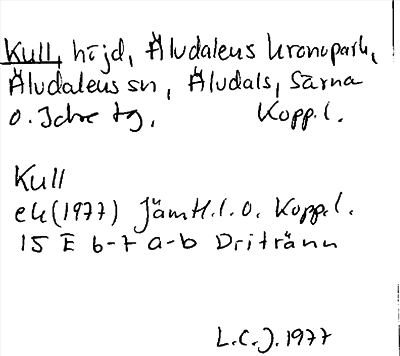 Kull, höjd, Äludalens kronopark,
Äludalens sn, Äludals, Särna
o. Idre tg, Kopp.l.
Kull
ek(1977) Jämtl.l.o. Kopp.l.
15 E 6-7 a-b Dritränn
L.C.J. 1977